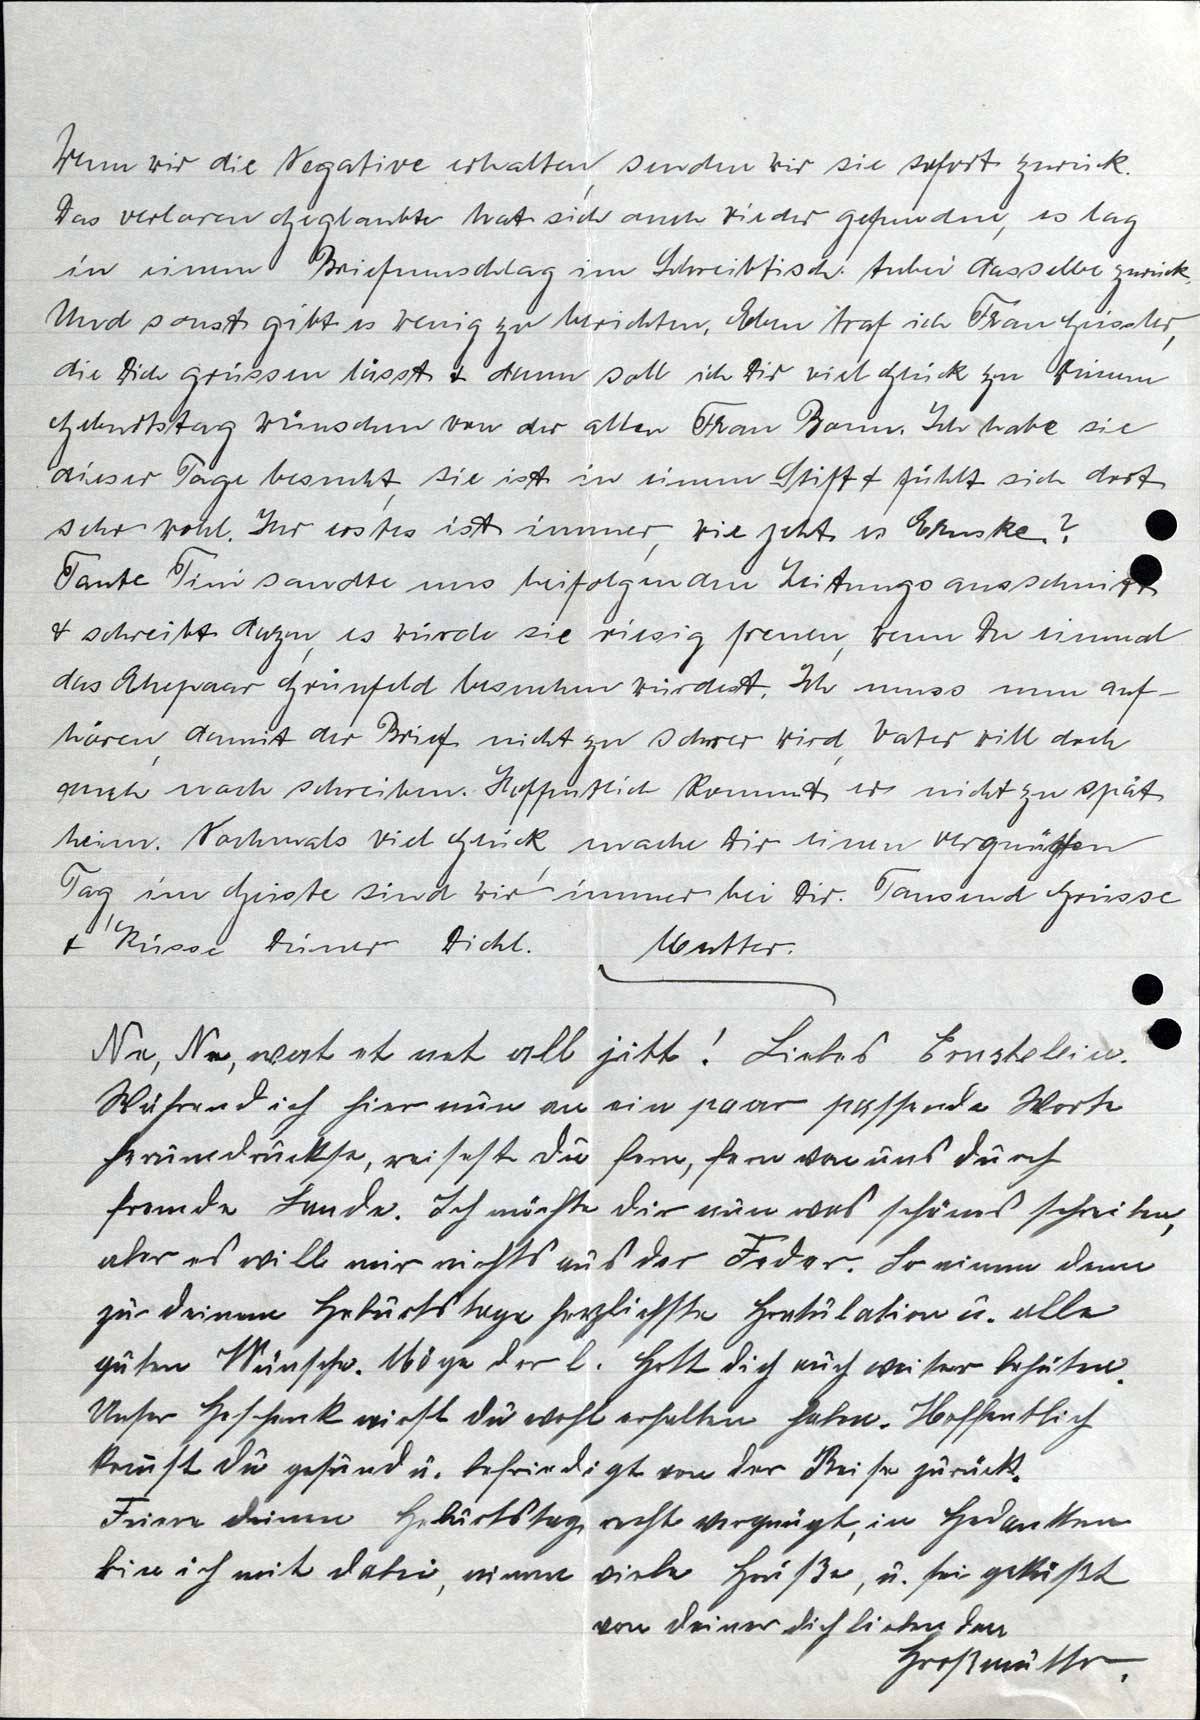 Wenn wir die Negative erhalten, senden wir sie sofort zurück.
Das verloren Geglaubte hat sich auch wieder gefunden, es lag
in einem Briefumschlag im Schreibtisch. Anbei dasselbe zurück.
Und sonst gibt es wenig zu berichten. Eben traf ich Frau Geissler,
die Dich grüssen lässt & dann soll ich Dir viel Glück zu Deinem
Geburtstag wünschen von der alten Frau Bonn. Ich habe sie
dieser Tage besucht, sie ist in einem Stift & fühlt sich dort
sehr wohl. Ihr erstes ist immer, wie geht es Ernske?
Tante Tini sandte uns beifolgenden Zeitungsausschnitt
& schreibt dazu, es würde sie riesig freuen, wenn Du einmal
das Ehepaar Grünfeld besuchen würdest. Ich muss nun auf-
hören, damit der Brief nicht zu schwer wird, Vater will doch
auch noch schreiben. Hoffentlich kommt er nicht zu spät
heim. Nochmals viel Glück, mache Dir einen vergnügten
Tag, im Geiste sind wir immer bei Dir. Tausend Grüsse
& Küsse Deiner Dichl. Mutter.
Ne, Ne, wat et net all jitt! Liebes Ernstelein.
Während ich hier nun an ein paar passende Worte
herumdruckse, reisest du fern, fern von uns durch
fremde Lande. Ich möchte dir nun was schönes schreiben,
aber es will mir nichts aus der Feder. So nimm denn
zu deinem Geburtstage herzlichste Gratulation u. alle
guten Wünsche. Möge der l. Gott dich auch weiter behüten.
Unser Geschenk wirst du wohl erhalten haben. Hoffentlich
kommst du gesund u. befriedigt von der Reise zurück.
Feiere deinen Geburtstag recht vergnügt, in Gedanken
bin ich mit dabei, nimm viele Grüße, u. sei geküßt
von deiner dich liebenden
Großmutter.